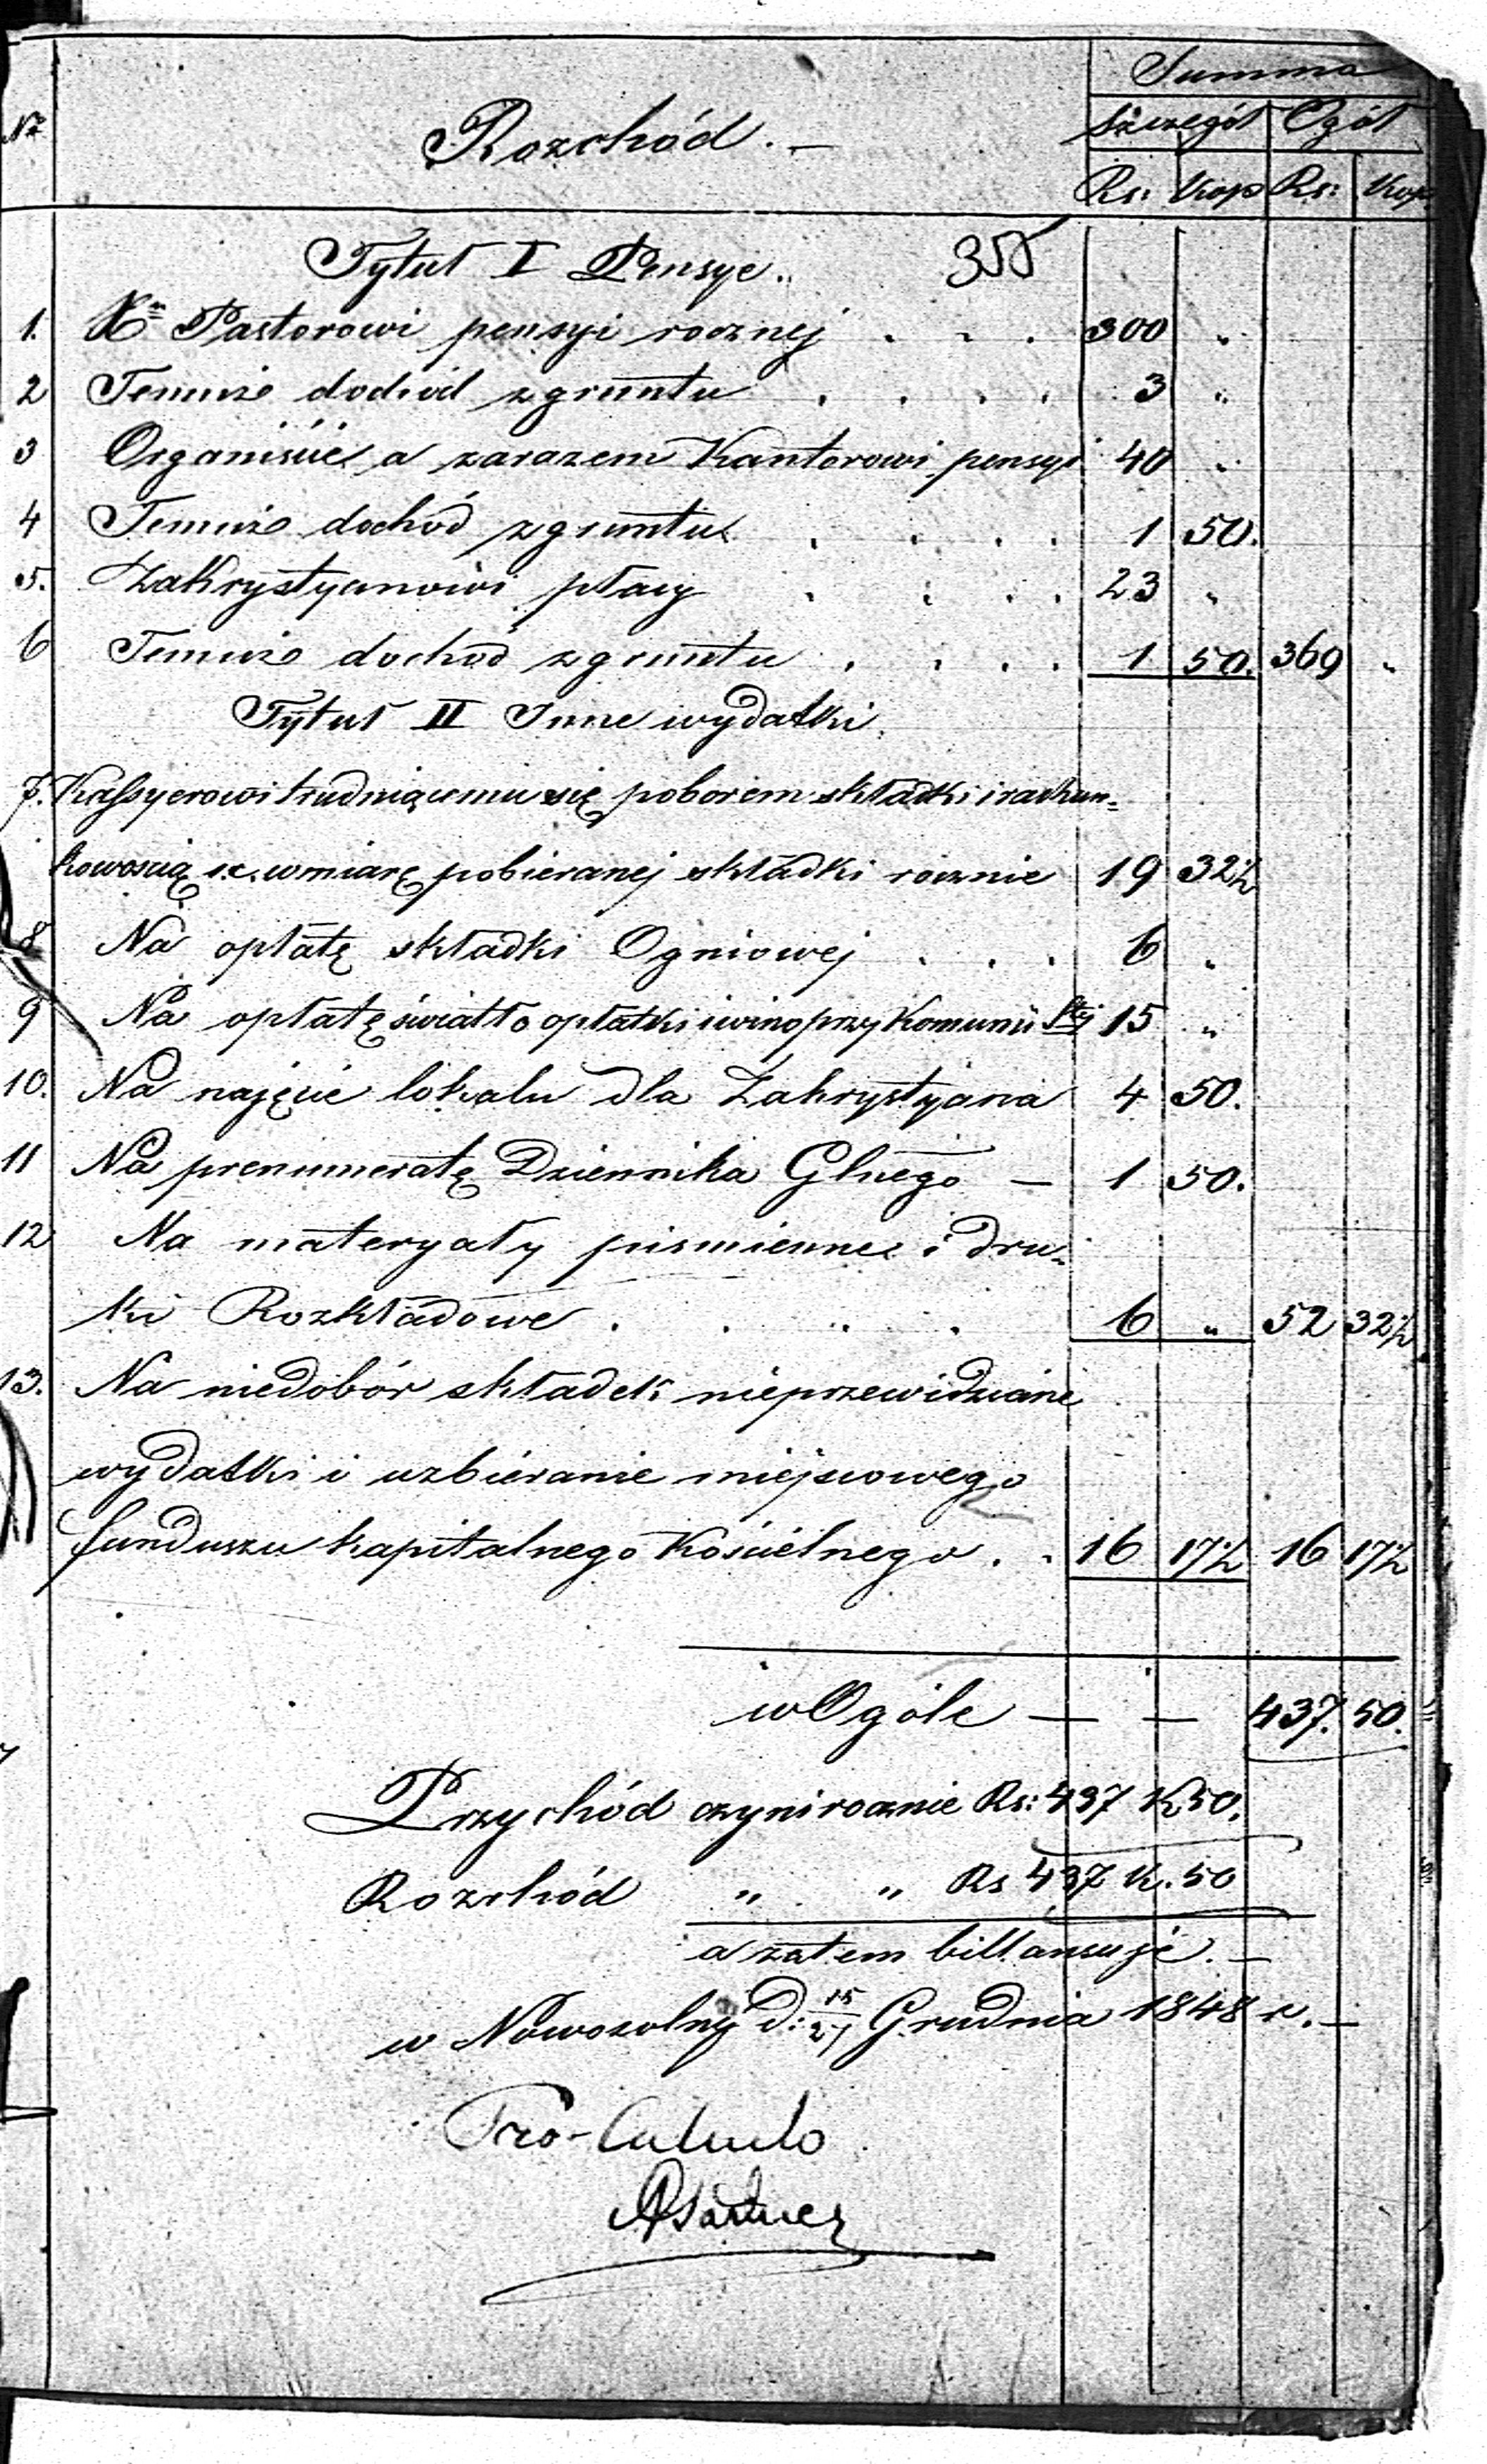 Summa
Nr Rozchód. — Szczegół Ogół
Rs: Kop Rs: Kop
Tytuł I Pensye.
1. Xu Pastorowi pensyi rocznej . . . 300 "
2 Temuż dochód z gruntu . . . . 3 "
3 Organiście a zarazem Kantorowi pensyi 40 "
4 Temuż dochód z gruntu . . . . 1 50.
5. Zakrystyanowi płacy . . . . 23 "
6 Temuż dochód z gruntu . . . . 1 50. 369 "
Tytuł II Inne wydatki.
7. Kassyerowi trudniącemu się poborem składki i rachun=
kowością w miarę pobieranej składki rocznie 19 32½
8 Na opłatę składki Ogniowej . . . 6 "
9 Na opłatę światło opłatki i wino przy Komunii Stej 15 "
10. Na najęcie lokalu dla Zakrystyana 4 50.
11 Na prenumeratę Dziennika Głnego — 1 50.
12 Na materyały piśmienne i dru=
ki Rozkładowe . . . . 6 " 52 32½
13. Na niedobór składek nieprzewidziane
wydatki i uzbieranie miejscowego
funduszu kapitalnego Kościelnego . . 16 17½ 16 17½
w Ogóle — — 437. 50.
Przychód czyni rocznie Rs: 437 K 50.
Rozchód " " Rs 437 K. 50
a zatem billansuje. —
w Nowosolny d: 15/27 Grudnia 1848 r. —
Pro-Calculo